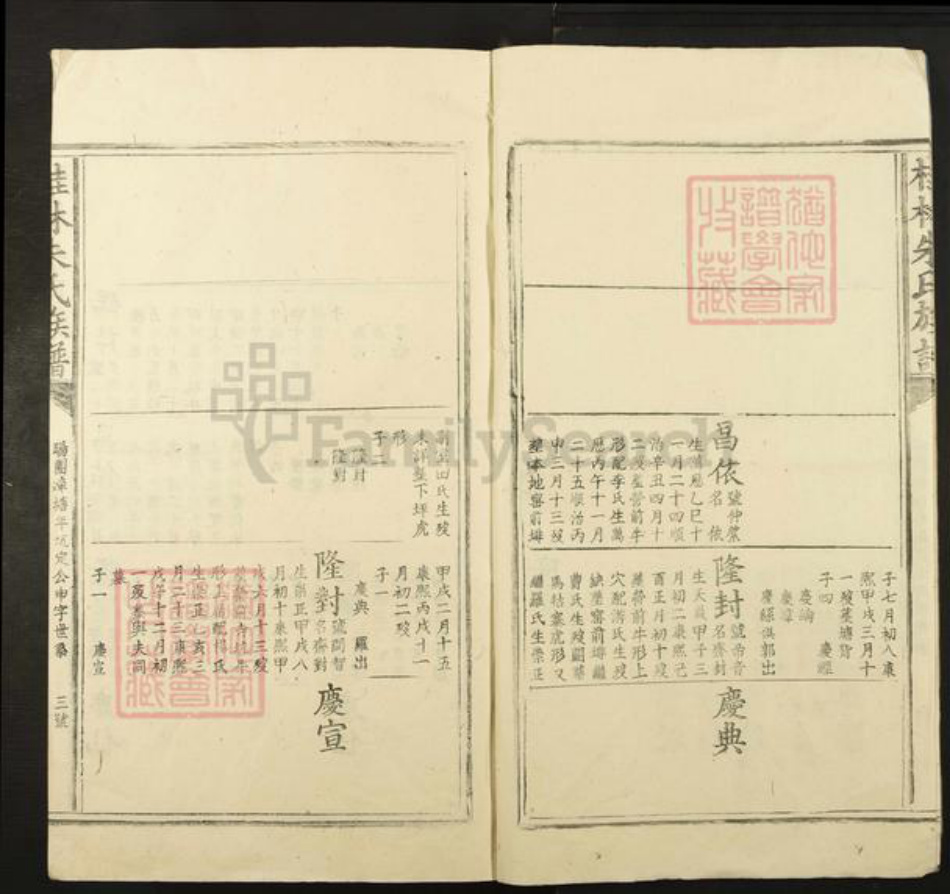 桂林朱氏族譜
子七月初八康
熙甲戌三月十
一歿葬
子四 慶
慶
慶
慶 俱郭出
昌依
號仲
名依
生萬曆乙巳十
一月二十四順
治辛丑四月十
二歿葬營前牛
形配李氏生萬
曆丙午十一月
二十五順治丙
申三月十三歿
葬本地窑前埠
隆封
號
名齊封
生天啟甲子三
月初二康熙己
酉正月初十歿
葬營前牛形上
穴配游氏生歿
缺葬窑前埠繼
曹氏生歿
馬牯寨虎形又
繼羅氏生崇正
慶典
繼 田氏生歿
未詳葬下坪虎
形
子二
隆封
隆對
甲戌二月十五
康熙丙戌十一
月初二歿
子一
慶典 羅出
隆對
號聞智
名齊對
生崇正甲戌八
月初十康熙甲
戌六月十三歿
形上 配 氏
生崇正乙亥三
月二十三康熙
戊午十二月初
一歿葬與夫同
墓
子一 慶宣
慶宣
桂林朱氏族譜
公申字世系
三號
猶他家
譜學會
收藏
FamilySearch